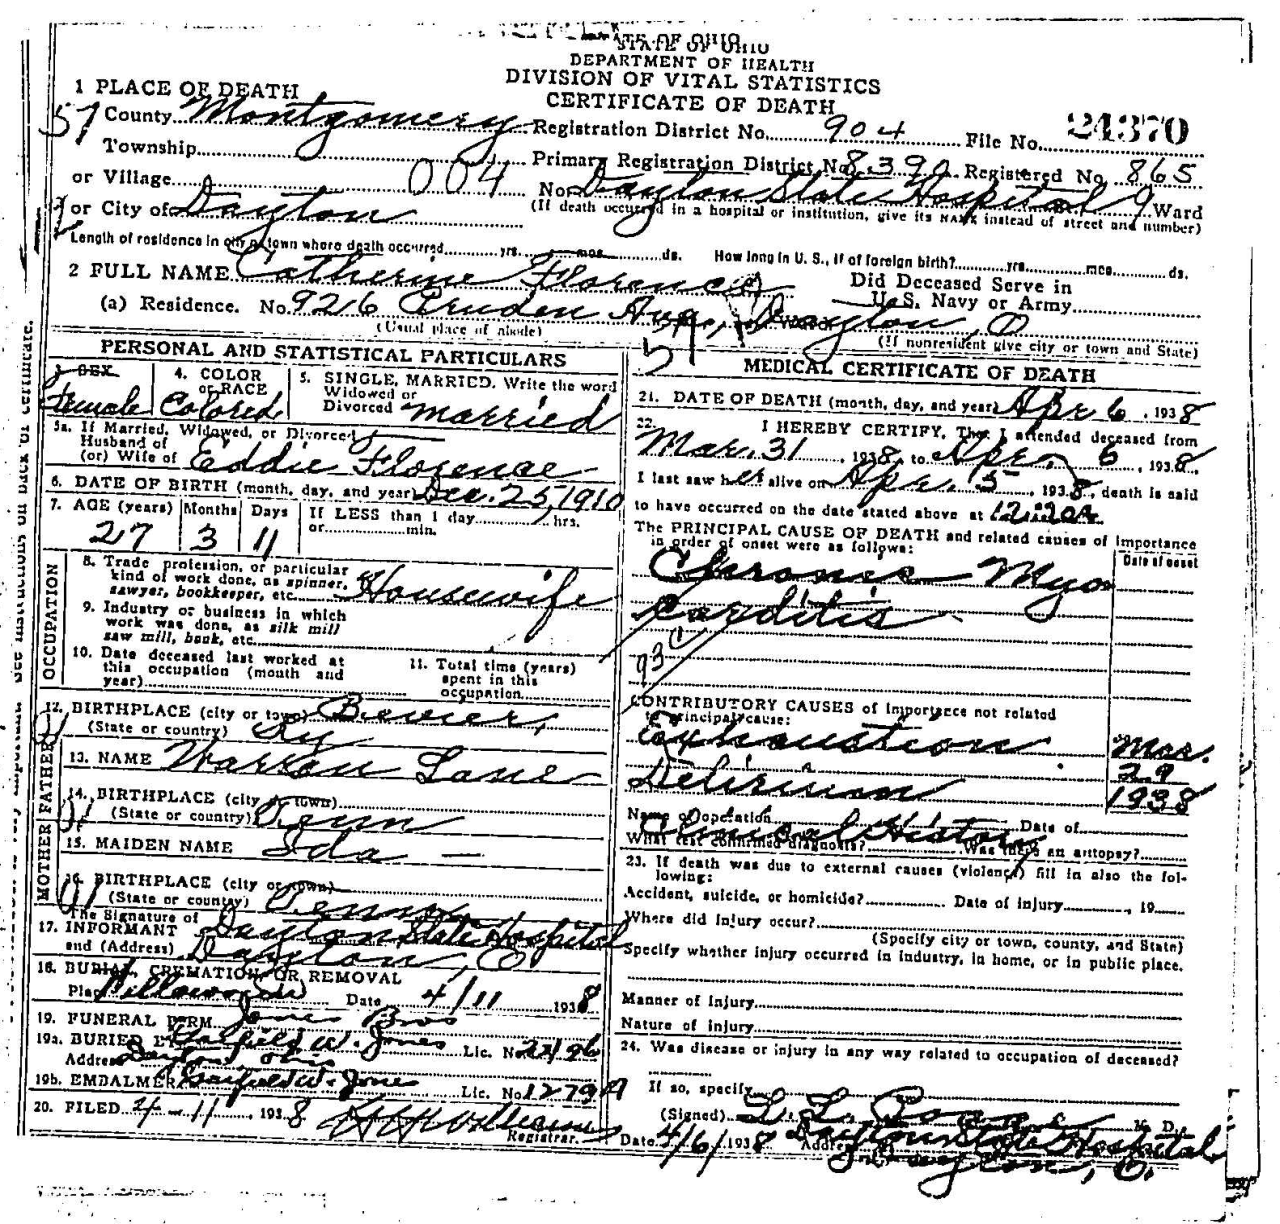 STATE OF OHIO
DEPARTMENT OF HEALTH
DIVISION OF VITAL STATISTICS
CERTIFICATE OF DEATH
1 PLACE OF DEATH
57 County Montgomery Registration District No. 904 File No. 24370
Township Primary Registration District No. 8390 Registered No. 865
or Village 004 No. Dayton State Hospital 9 Ward
or City of Dayton (If death occurred in a hospital or institution, give its NAME instead of street and number)
Length of residence in city or town where death occurred yrs. mos. ds. How long in U. S., if of foreign birth? yrs. mos. ds.
2 FULL NAME Catherine Florence Did Deceased Serve in U. S. Navy or Army
(a) Residence. No. 926 Ave., Dayton, O
(Usual place of abode) (If nonresident give city or town and State)
57
PERSONAL AND STATISTICAL PARTICULARS
3. SEX Female
4. COLOR or RACE Colored
5. SINGLE, MARRIED, Write the word Widowed or Divorced Married
5a. If Married, Widowed, or Divorced
Husband of
(or) Wife of Eddie Florence
6. DATE OF BIRTH (month, day, and year) Dec. 25, 1910
7. AGE (years) 27 Months 3 Days 11 If LESS than 1 day hrs. or min.
OCCUPATION
8. Trade profession, or particular
kind of work done, as spinner,
sawyer, bookkeeper, etc. Housewife
9. Industry or business in which
work was done, as silk mill
saw mill, bank, etc.
10. Date deceased last worked at
this occupation (month and
year)
11. Total time (years)
spent in this
occupation
12. BIRTHPLACE (city or town)
(State or country) Ky
FATHER
13. NAME Warren Lane
14. BIRTHPLACE (city or town)
(State or country) Tenn
MOTHER
15. MAIDEN NAME Ida —
16. BIRTHPLACE (city or town)
(State or country) Tenn
17. The Signature of INFORMANT Dayton State Hospital
and (Address) Dayton, O
18. BURIAL, CREMATION, OR REMOVAL
Place Date 4/11 1938
19. FUNERAL FIRM Jones Bros
19a. BURIED BY Garfield W. Jones Lic. No.
Address Dayton Ohio
19b. EMBALMER Garfield W. Jones Lic. No.
20. FILED 4-11, 1938 Williams
Registrar.
MEDICAL CERTIFICATE OF DEATH
21. DATE OF DEATH (month, day, and year) Apr 6, 1938
22. I HEREBY CERTIFY, That I attended deceased from
Mar. 31, 1938, to Apr. 6, 1938,
I last saw her alive on Apr. 5, 1938, death is said
to have occurred on the date stated above at 12:20A
The PRINCIPAL CAUSE OF DEATH and related causes of importance
in order of onset were as follows: Date of onset
Chronic Myo
carditis
93C
CONTRIBUTORY CAUSES of importance not related
to principal cause:
Exhaustion Mar.
29
Delirium 1938
Name of operation Date of
What test confirmed diagnosis? Clinical History Was there an autopsy?
23. If death was due to external causes (violence) fill in also the following:
Accident, suicide, or homicide? Date of injury , 19
Where did injury occur?
(Specify city or town, county, and State)
Specify whether injury occurred in industry, in home, or in public place.
Manner of injury
Nature of injury
24. Was disease or injury in any way related to occupation of deceased?
If so, specify
(Signed) L. L. M. D.
Date 4/6/1938 Address Dayton State Hospital
Dayton, O.